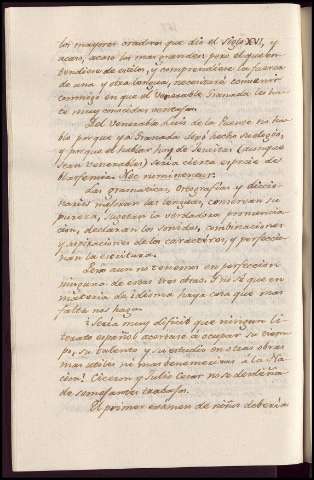 los mayores oradores que dió el Siglo XVI, y
acaso, acaso los mas grandes; pero el que en-
tendiere de estilos, y comprendiere la fuerza
de una y otra lengua, necesitará convenir
conmigo en que el Venerable Granada les hace
muy conocidas ventajas.
Del Venerable Luis de la Puente no ha-
blo porque ya Granada dejó hecho su elogio,
y porque el hablar hoy de Jesuitas (aunque
sean venerables) sería cierta especie de
blasfemia. Nec nominetur.
Las gramaticas, ortografías y diccio-
narios mejoran las lenguas, conservan su
pureza, sugetan la verdadera pronuncia-
cion, declaran los sonidos, combinaciones
y aspiraciones de los caractéres, y perfeccio-
nan la escritura.
Pero aun no tenemos en perfeccion
ninguna de estas tres obras. Y no sé que en
materia de idioma haya cosa que mas
falta nos haga.
¿Sería muy dificil que ningun li-
terato español acertase á ocupar su tiem-
po, su talento y su estudio en otras obras
mas utiles ni mas benemeritas á la Na-
cion? Ciceron y Julio Cesar no se desdeñaron
de semejantes trabajos.
El primer exámen de niños debería